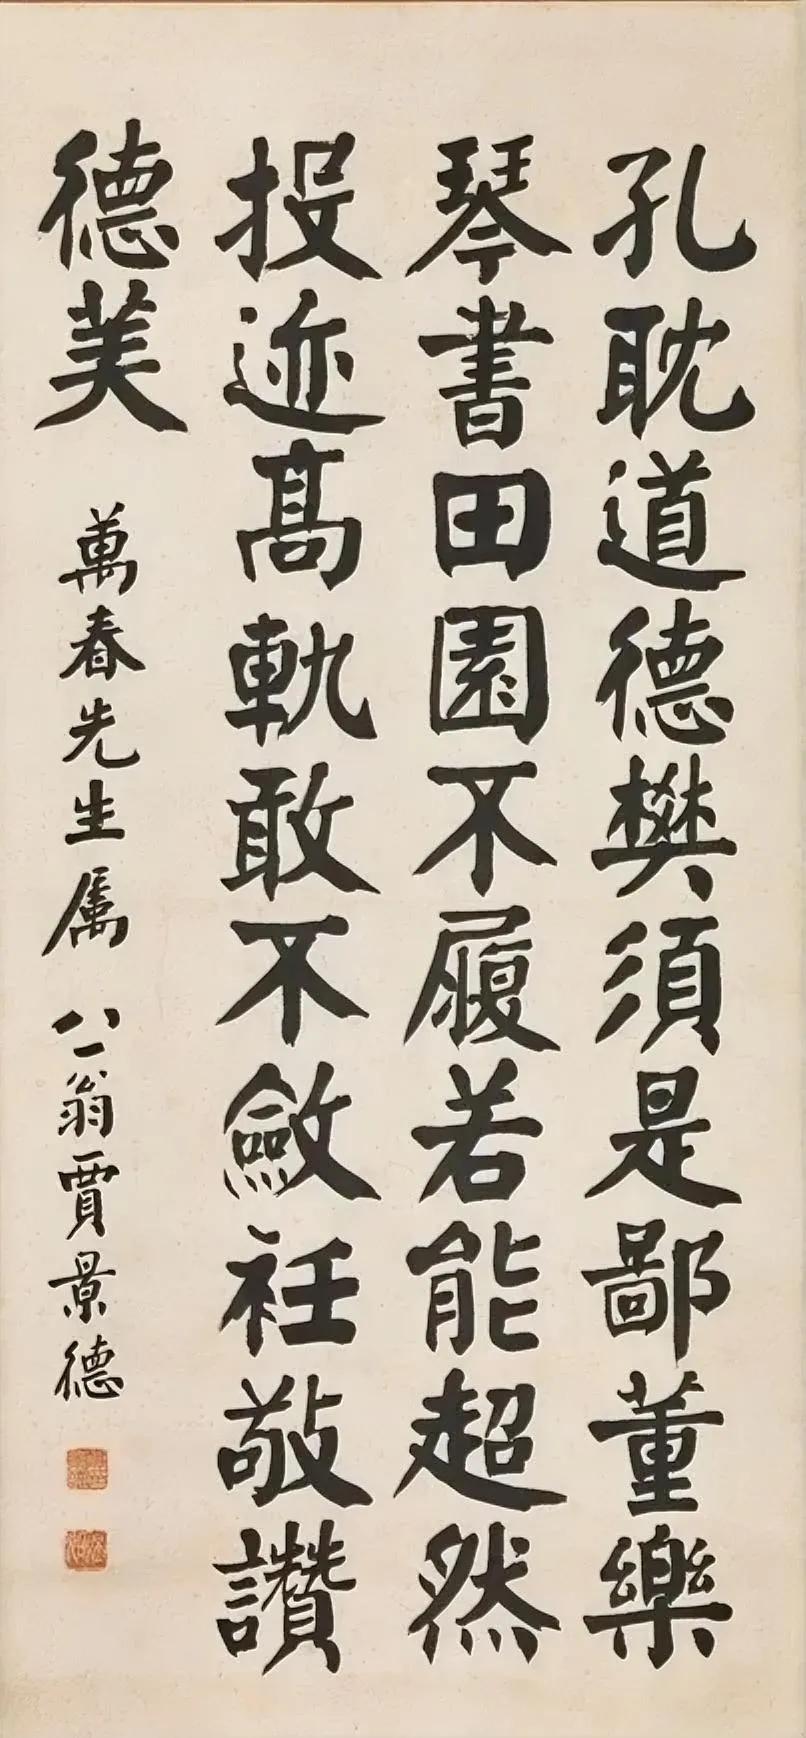 孔耽道德樊須是鄙董樂
琴書田園不履若能超然
投迹高軌敢不斂衽敬讚
德美
萬春先生屬 八一翁賈景德